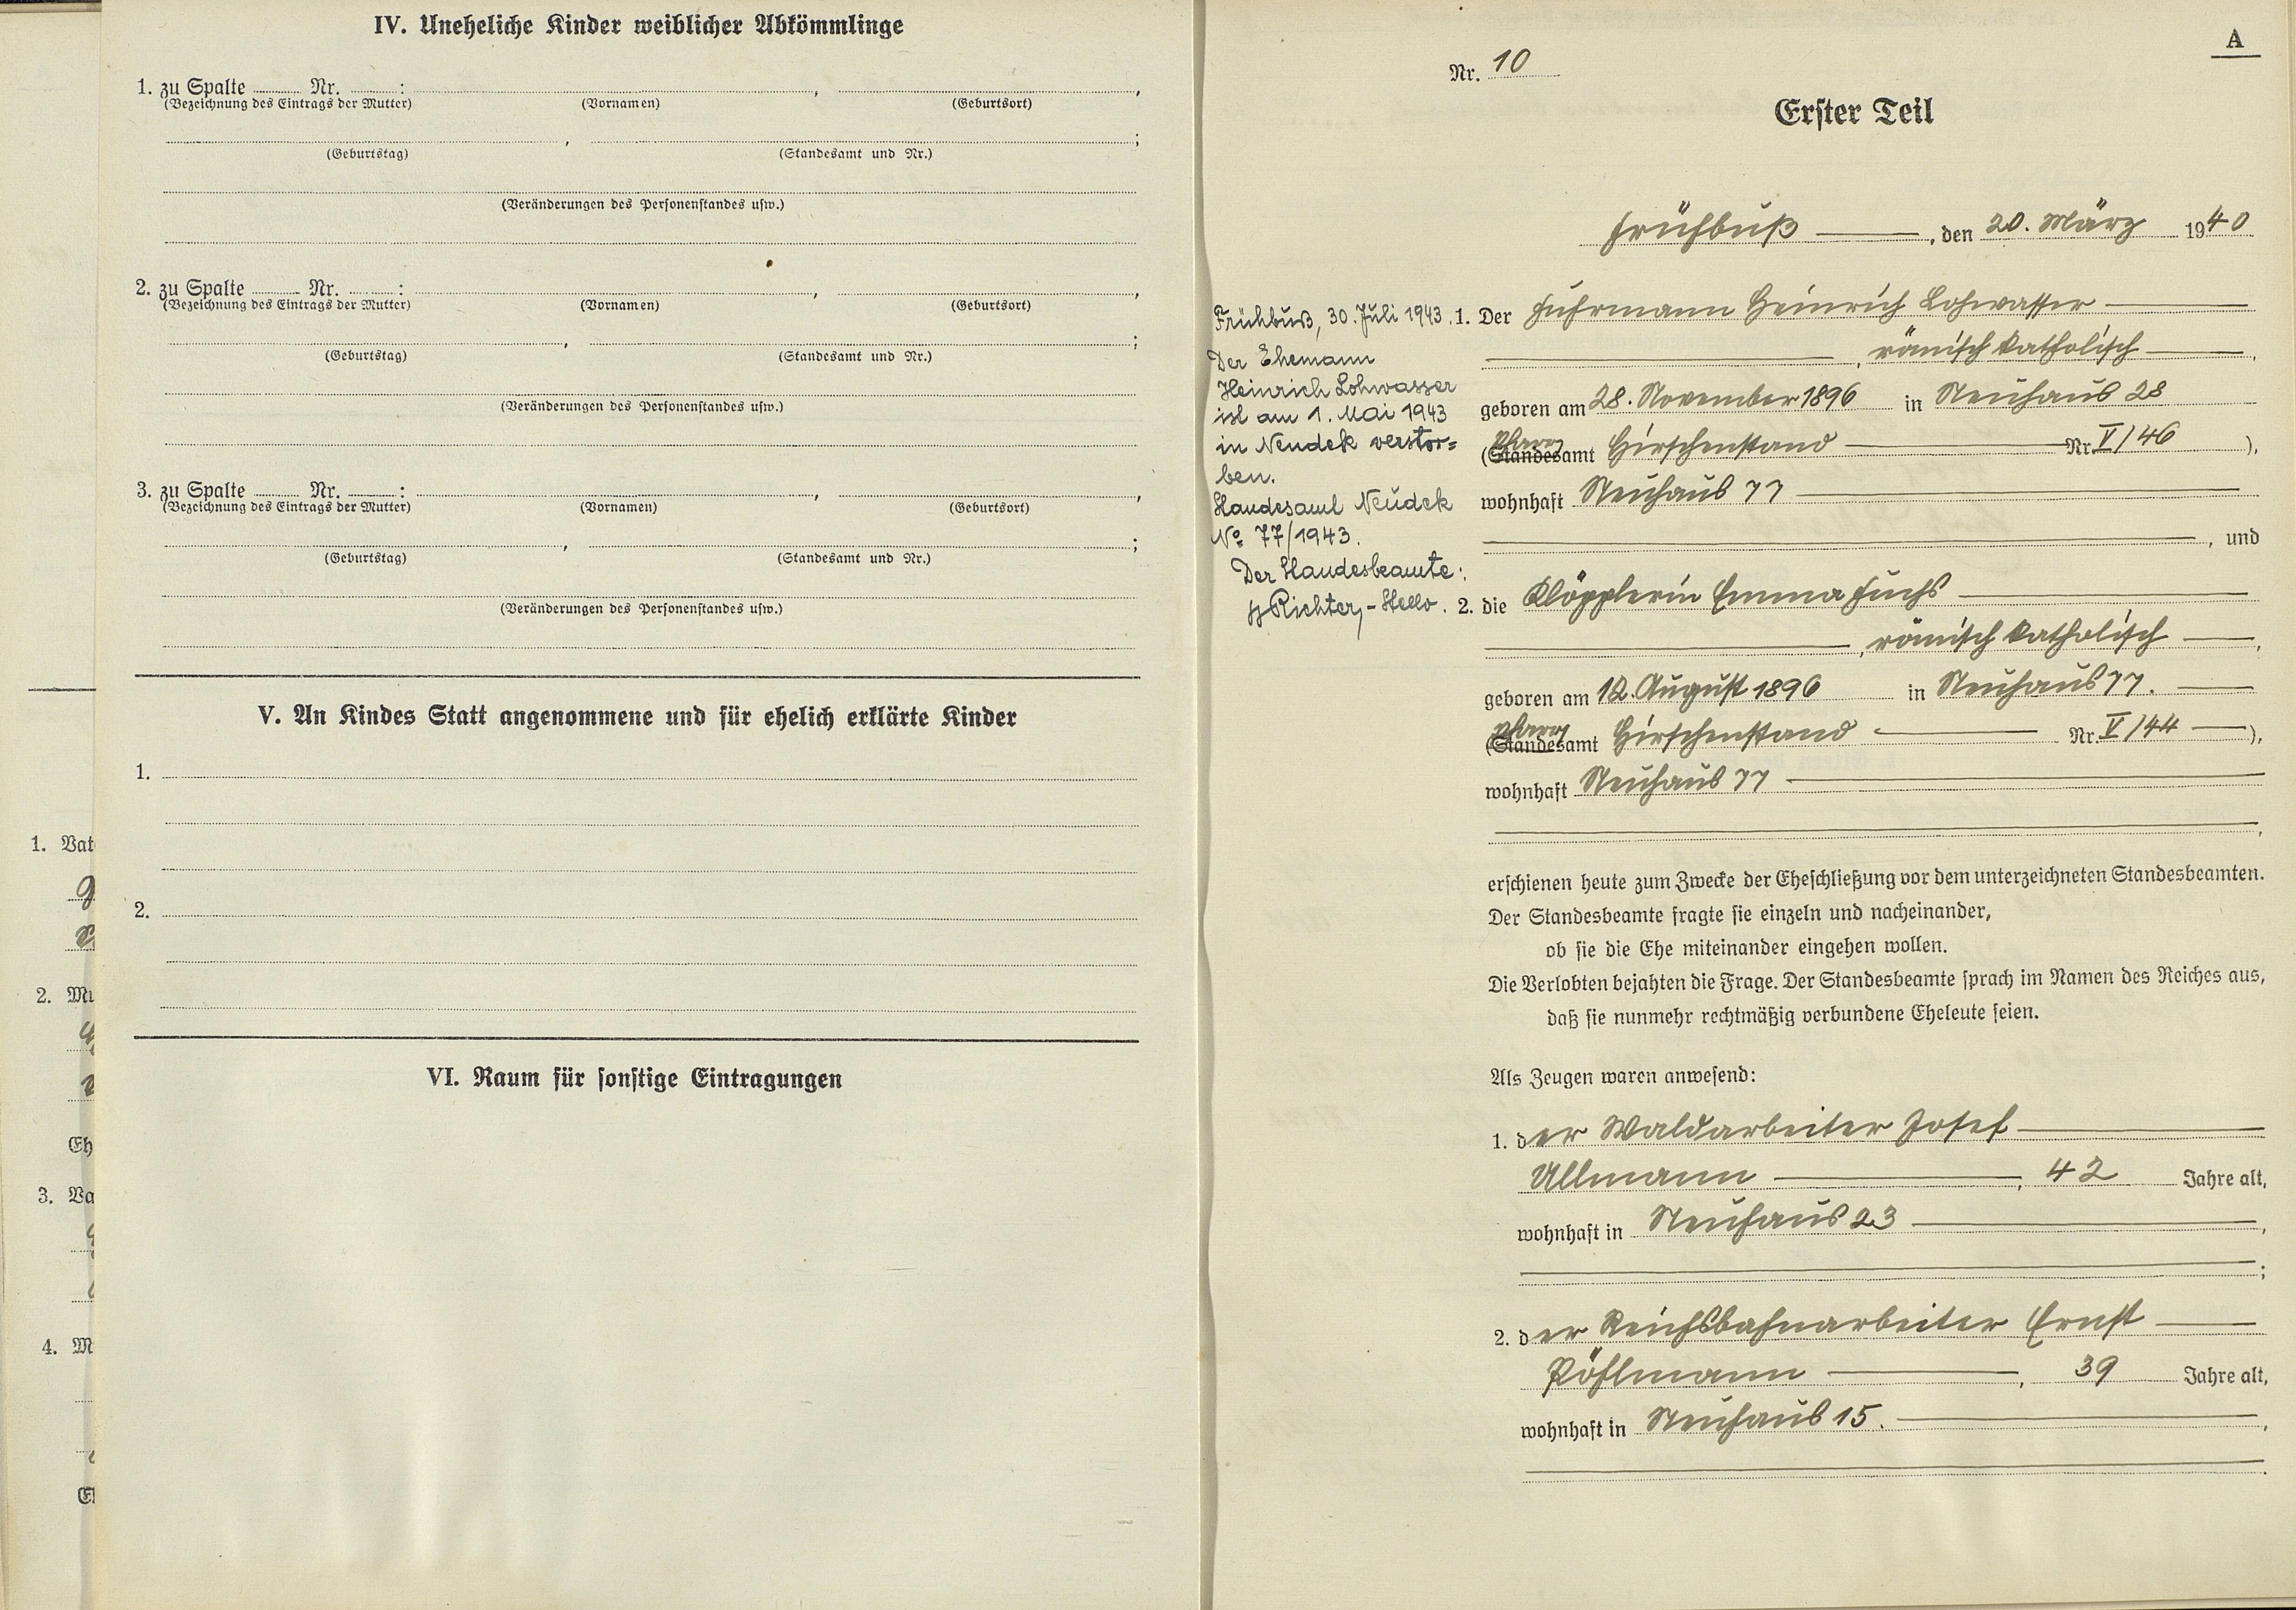 IV. Uneheliche Kinder weiblicher Abkömmlinge
1. zu Spalte ........ Nr. ........ :
(Bezeichnung des Eintrags der Mutter) (Vornamen) (Geburtsort)
(Geburtstag) (Standesamt und Nr.)
(Veränderungen des Personenstandes usw.)
2. zu Spalte ........ Nr. ........ :
(Bezeichnung des Eintrags der Mutter) (Vornamen) (Geburtsort)
(Geburtstag) (Standesamt und Nr.)
(Veränderungen des Personenstandes usw.)
3. zu Spalte ........ Nr. ........ :
(Bezeichnung des Eintrags der Mutter) (Vornamen) (Geburtsort)
(Geburtstag) (Standesamt und Nr.)
(Veränderungen des Personenstandes usw.)
V. An Kindes Statt angenommene und für ehelich erklärte Kinder
1.
2.
VI. Raum für sonstige Eintragungen
1. Vat
2. Mu
Eh
3. Va
4. M
A
Nr. 10
Erster Teil
Frühbuß, den 20. März 1940
1. Der Fuhrmann Heinrich Lohwasser
, römisch katholisch,
geboren am 28. November 1896 in Neuhaus 28
(Standesamt Pfarr Hirschenstand Nr. V/46),
wohnhaft Neuhaus 77
, und
2. die Klöpplerin Emma Fuchs
, römisch katholisch,
geboren am 12. August 1896 in Neuhaus 77.
(Standesamt Pfarr Hirschenstand Nr. V/44),
wohnhaft Neuhaus 77
Frühbuß, 30. Juli 1943.
Der Ehemann
Heinrich Lohwasser
ist am 1. Mai 1943
in Neudek verstor=
ben.
Standesamt Neudek
No 77/1943.
Der Standesbeamte:
Richter,
erschienen heute zum Zwecke der Eheschließung vor dem unterzeichneten Standesbeamten.
Der Standesbeamte fragte sie einzeln und nacheinander,
ob sie die Ehe miteinander eingehen wollen.
Die Verlobten bejahten die Frage. Der Standesbeamte sprach im Namen des Reiches aus,
daß sie nunmehr rechtmäßig verbundene Eheleute seien.
Als Zeugen waren anwesend:
1. der Waldarbeiter Josef
Ullmann, 42 Jahre alt,
wohnhaft in Neuhaus 23,
;
2. der Reichsbahnarbeiter Ernst
Pöhlmann, 39 Jahre alt,
wohnhaft in Neuhaus 15.